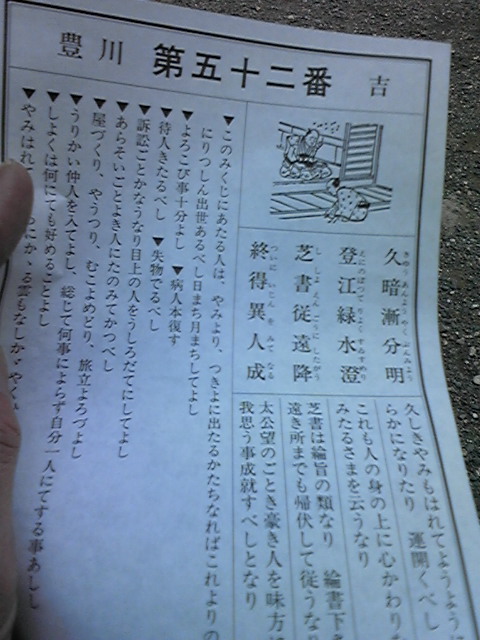 豊川 第五十二番 吉
久暗漸分明
登江緑水澄
芝書従遠降
終得異人成
久しきやみもはれてようよう
らかになりたり 運開くべし
これも人の身の上に心かわり
みたるさまを云うなり
芝書は綸旨の類なり 綸書下
遠き所までも帰伏して従うな
太公望のごとき豪き人を味方に
我思う事成就すべしとなり
▼このみくじにあたる人は、やみより、つきよに出たるかたちなればこれよりの
にりつしん出世あるべし日まち月まちしてよし
▼よろこび事十分よし ▼病人本復す
▼待人きたるべし ▼失物でるべし
▼訴訟ごとかなうなり目上の人をうしろだてにしてよし
▼あらそいごとよき人にたのみてかつべし
▼屋づくり、やうつり、むこよめどり、旅立よろづよし
▼うりかい仲人を入てよし、総じて何事によらず自分一人にてする事あしし
▼しよくは何にても好めることよし
▼やみはれて